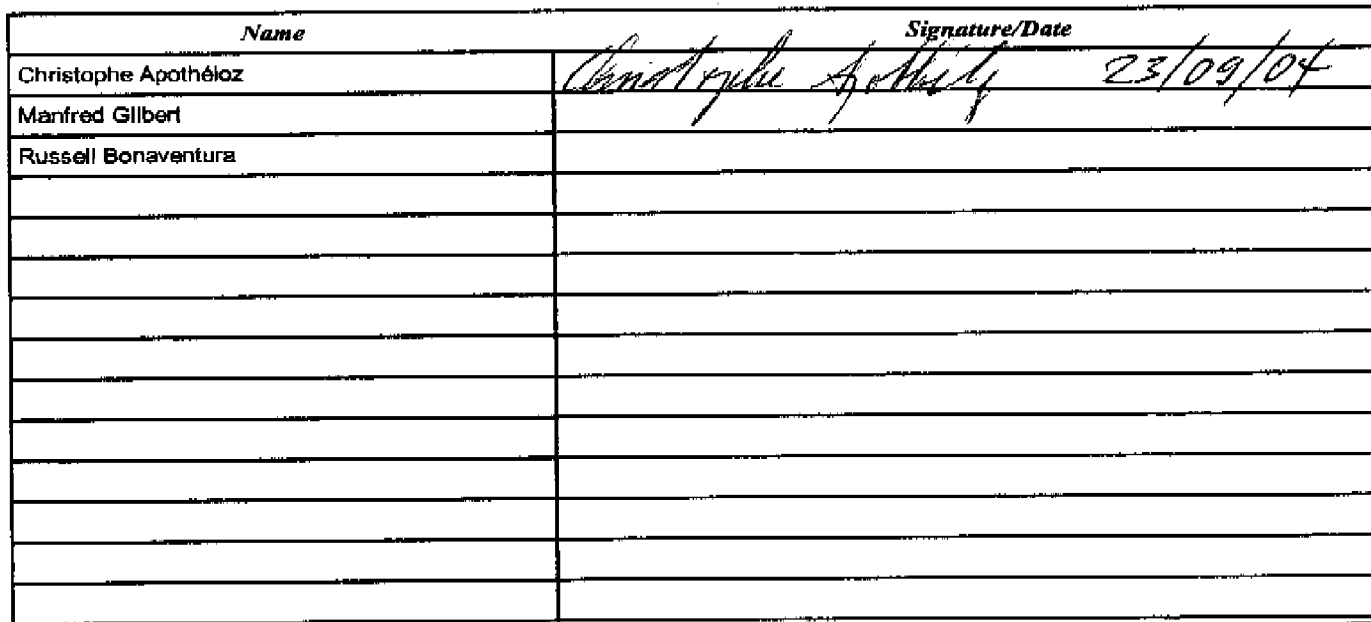 Name Signature/Date
Christophe Apothéloz Christophe Apothéloz 23/09/04
Manfred Gilbert
Russell Bonaventura